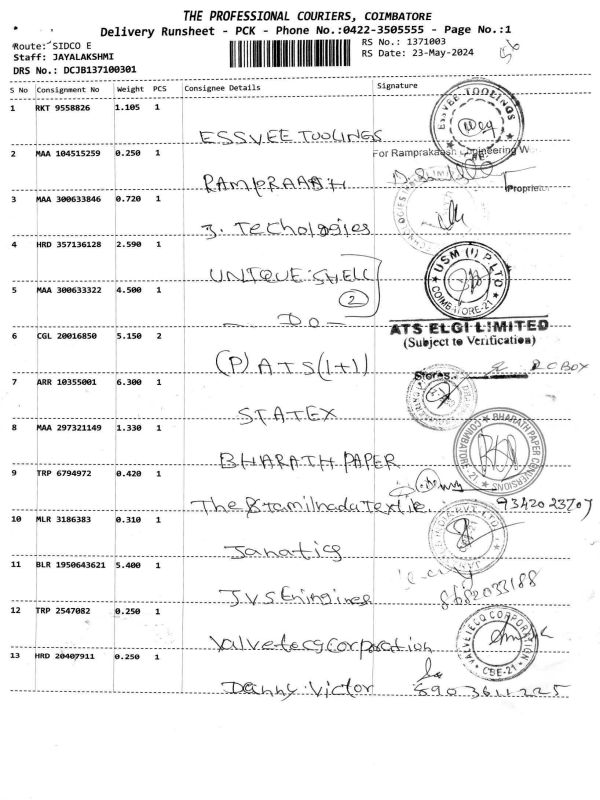 THE PROFESSIONAL COURIERS, COIMBATORE
Delivery Runsheet - PCK - Phone No.:0422-3505555 - Page No.:1
Route: SIDCO E
RS No.: 1371003
Staff: JAYALAKSHMI
RS Date: 23-May-2024
DRS No.: DCJB137100301
S No Consignment No Weight PCS Consignee Details Signature
1 RKT 9558826 1.105 1
ESSVEE TOOLINGS
ESSVEE TOOLINGS
2 MAA 104515259 0.250 1
For Ramprakaash Engineering W
RAMPRAASH
Proprietor
3 MAA 300633846 0.720 1
3. Techologies
4 HRD 357136128 2.590 1
UNIQUE SHELL
USM (I) P LTD
COIMBATORE-21
5 MAA 300633322 4.500 1
2
- DO -
ATS ELGI LIMITED
(Subject to Verification)
6 CGL 20016850 5.150 2
(P) ATS(1+1)
Stores
RC BOY
7 ARR 10355001 6.300 1
STATEX
8 MAA 297321149 1.330 1
BHARATH PAPER
BHARATH PAPER CONVERSIONS
COIMBATORE
9 TRP 6794972 0.420 1
The Tamilnadu Textile
9342023707
10 MLR 3186383 0.310 1
Janatics
11 BLR 1950643621 5.400 1
J.V.S Eningines
8682033188
12 TRP 2547082 0.250 1
Valvetecg corporation
VALVETECQ CORPORATION
CBE-21
13 HRD 20407911 0.250 1
Danny. Victor
8903611225